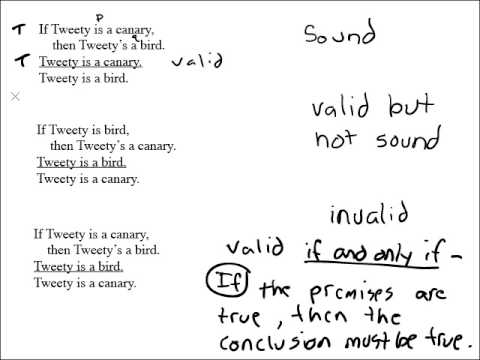 p
T If Tweety is a canary,
q
then Tweety's a bird.
T Tweety is a canary. valid
Tweety is a bird.
Sound
If Tweety is bird,
then Tweety's a canary.
Tweety is a bird.
Tweety is a canary.
valid but
not sound
If Tweety is a canary,
then Tweety's a bird.
Tweety is a bird.
Tweety is a canary.
invalid
valid if and only if –
If the premises are
true, then the
conclusion must be true.